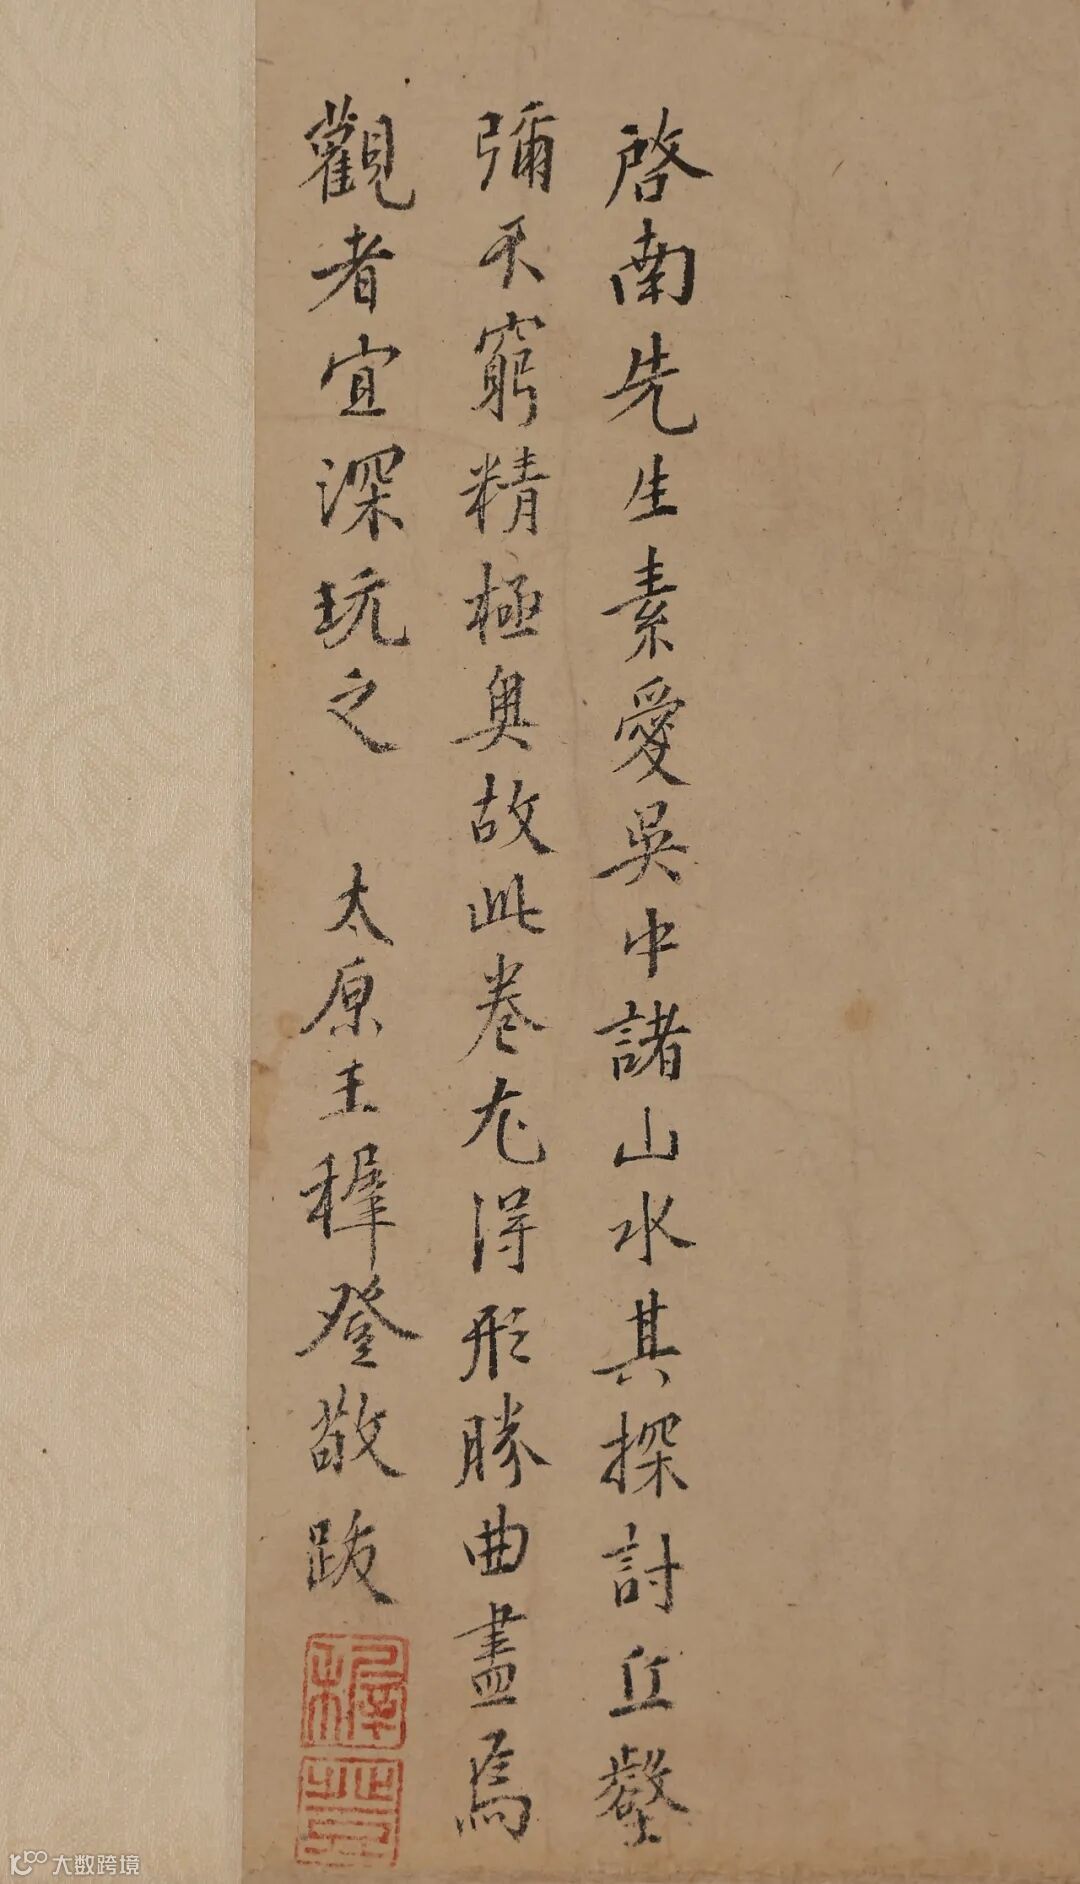 啓南先生素愛吳中諸山水其探討丘壑
彌天窮精極奥故此卷尤得形勝曲盡焉
觀者宜深玩之 太原王穉登敬跋
大数跨境